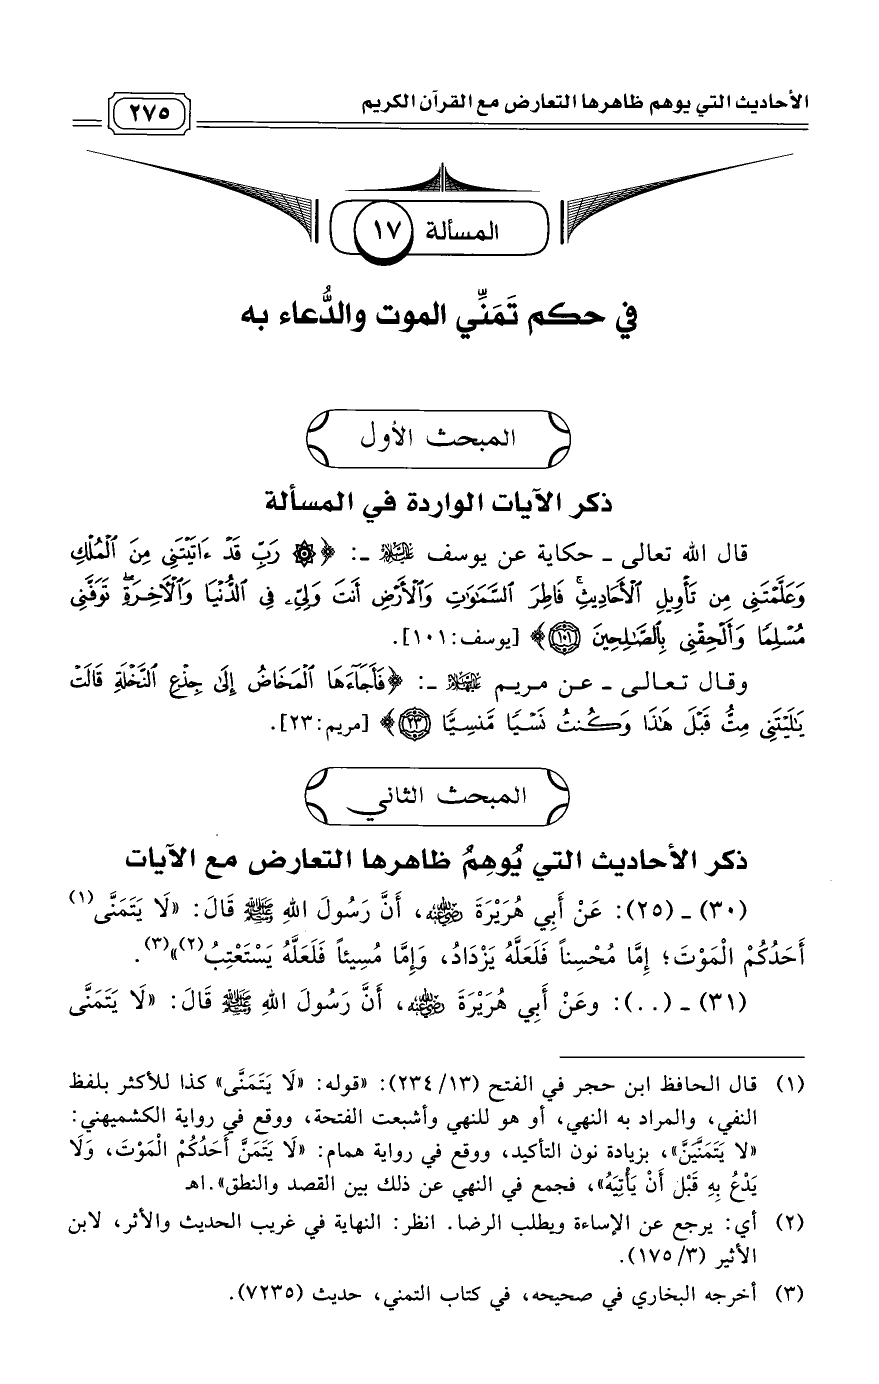 الأحاديث التي يوهم ظاهرها التعارض مع القرآن الكريم
٢٧٥
المسألة ١٧
في حكم تَمَنِّي الموت والدُّعاء به
المبحث الأول
ذكر الآيات الواردة في المسألة
قال الله تعالى ـ حكاية عن يوسف عليه السلام ـ: ﴿۞ رَبِّ قَدْ ءَاتَيْتَنِي مِنَ ٱلْمُلْكِ
وَعَلَّمْتَنِي مِن تَأْوِيلِ ٱلْأَحَادِيثِ ۚ فَاطِرَ ٱلسَّمَٰوَٰتِ وَٱلْأَرْضِ أَنتَ وَلِيِّۦ فِي ٱلدُّنْيَا وَٱلْءَاخِرَةِ ۖ تَوَفَّنِي
مُسْلِمًا وَأَلْحِقْنِي بِٱلصَّٰلِحِينَ ١٠١﴾ [يوسف: ١٠١].
وقال تعالى ـ عن مريم عليها السلام ـ: ﴿فَأَجَآءَهَا ٱلْمَخَاضُ إِلَىٰ جِذْعِ ٱلنَّخْلَةِ قَالَتْ
يَٰلَيْتَنِي مِتُّ قَبْلَ هَٰذَا وَكُنتُ نَسْيًا مَّنسِيًّا ٢٣﴾ [مريم: ٢٣].
المبحث الثاني
ذكر الأحاديث التي يُوهِمُ ظاهرها التعارض مع الآيات
(٣٠) ـ (٢٥): عَنْ أَبِي هُرَيْرَةَ رضي الله عنه، أَنَّ رَسُولَ اللهِ ﷺ قَالَ: «لَا يَتَمَنَّى(١)
أَحَدُكُمْ الْمَوْتَ؛ إِمَّا مُحْسِناً فَلَعَلَّهُ يَزْدَادُ، وَإِمَّا مُسِيئاً فَلَعَلَّهُ يَسْتَعْتِبُ(٢)»(٣).
(٣١) ـ (..): وعَنْ أَبِي هُرَيْرَةَ رضي الله عنه، أَنَّ رَسُولَ اللهِ ﷺ قَالَ: «لَا يَتَمَنَّى
(١) قال الحافظ ابن حجر في الفتح (١٣/ ٢٣٤): «قوله: «لَا يَتَمَنَّى» كذا للأكثر بلفظ
النفي، والمراد به النهي، أو هو للنهي وأشبعت الفتحة، ووقع في رواية الكشميهني:
«لا يَتَمَنَّيَنَّ»، بزيادة نون التأكيد، ووقع في رواية همام: «لَا يَتَمَنَّ أَحَدُكُمْ الْمَوْتَ، وَلَا
يَدْعُ بِهِ قَبْلَ أَنْ يَأْتِيَهُ»، فجمع في النهي عن ذلك بين القصد والنطق».اهـ
(٢) أي: يرجع عن الإساءة ويطلب الرضا. انظر: النهاية في غريب الحديث والأثر، لابن
الأثير (٣/ ١٧٥).
(٣) أخرجه البخاري في صحيحه، في كتاب التمني، حديث (٧٢٣٥).